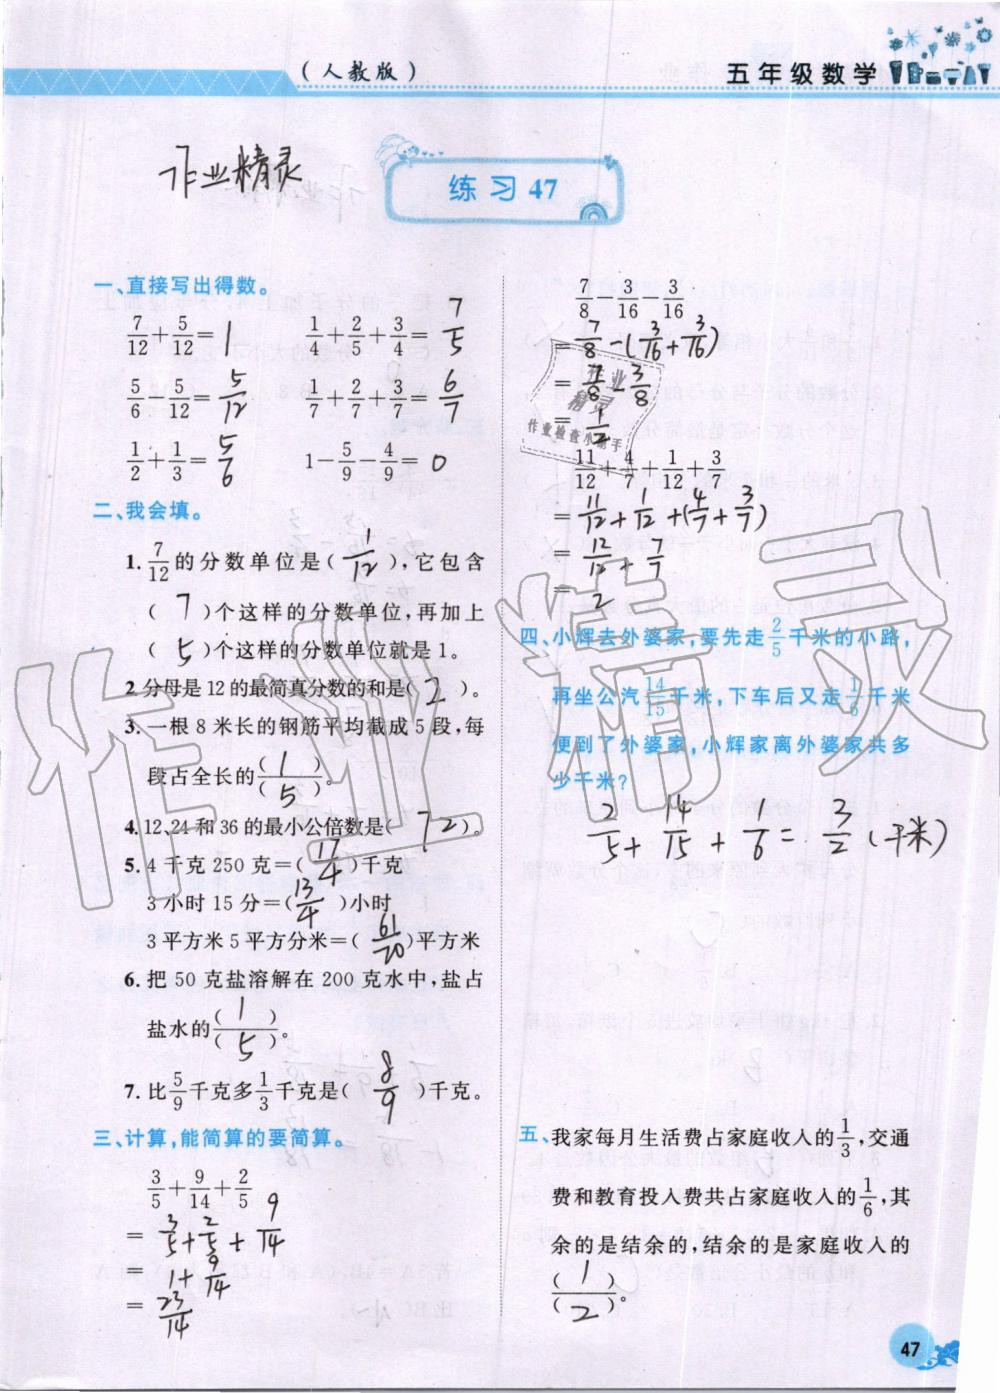 (人教版)
五年级数学
作业精灵
练习 47
一、直接写出得数。
7/12+5/12=1 1/4+2/5+3/4=7/5
5/6-5/12=5/12 1/7+2/7+3/7=6/7
1/2+1/3=5/6 1-5/9-4/9=0
二、我会填。
1. 7/12的分数单位是(1/12),它包含
(7)个这样的分数单位,再加上
(5)个这样的分数单位就是1。
2.分母是12的最简真分数的和是(2)。
3.一根8米长的钢筋平均截成5段,每
段占全长的(1)/(5)。
4.12、24和36的最小公倍数是(72)。
5.4千克250克=(17/4)千克
3小时15分=(13/4)小时
3平方米5平方分米=(61/20)平方米
6.把50克盐溶解在200克水中,盐占
盐水的(1)/(5)。
7.比5/9千克多1/3千克是(8/9)千克。
三、计算,能简算的要简算。
3/5+9/14+2/5
=3/5+2/5+9/14
=1+9/14
=23/14
7/8-3/16-3/16
=7/8-(3/16+3/16)
=7/8-3/8
=1/2
11/12+4/7+1/12+3/7
=11/12+1/12+(4/7+3/7)
=12/12+7/7
=2
四、小辉去外婆家,要先走2/5千米的小路,
再坐公汽14/15千米,下车后又走1/6千米
便到了外婆家,小辉家离外婆家共多
少千米?
2/5+14/15+1/6=3/2(千米)
五、我家每月生活费占家庭收入的1/3,交通
费和教育投入费共占家庭收入的1/6,其
余的是结余的,结余的是家庭收入的
(1)/(2)。
作业
精灵
作业检查小助手
作业精灵
47